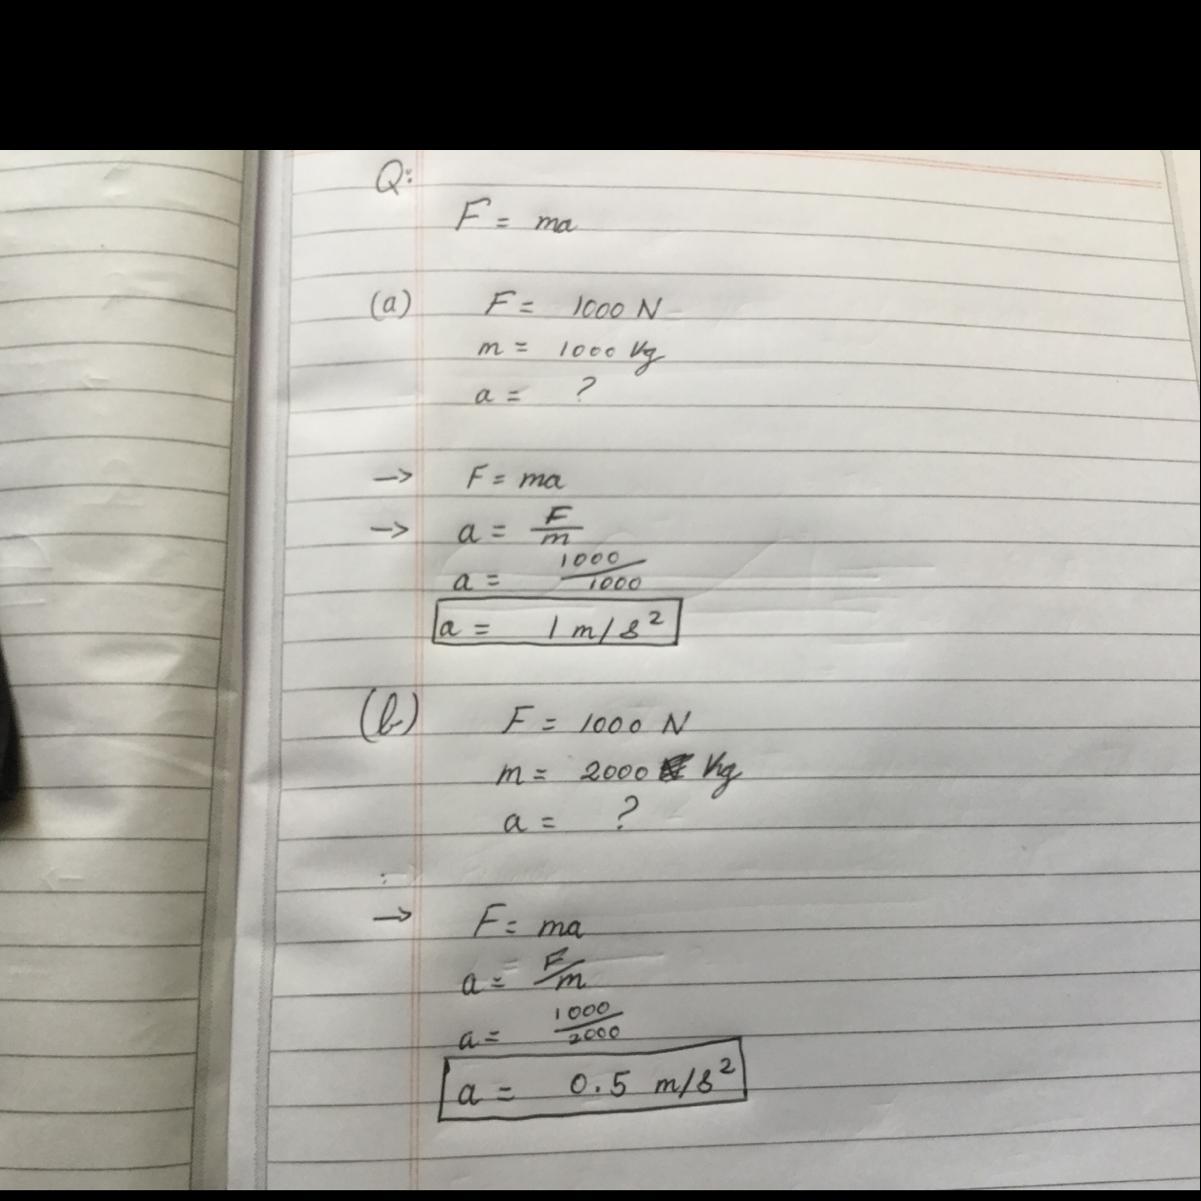 Q:
F = ma
(a) F = 1000 N
m = 1000 Kg
a = ?
-> F = ma
-> a = F/m
a = 1000/1000
a = 1 m/s²
(b) F = 1000 N
m = 2000 Kg
a = ?
-> F = ma
a = F/m
a = 1000/2000
a = 0.5 m/s²